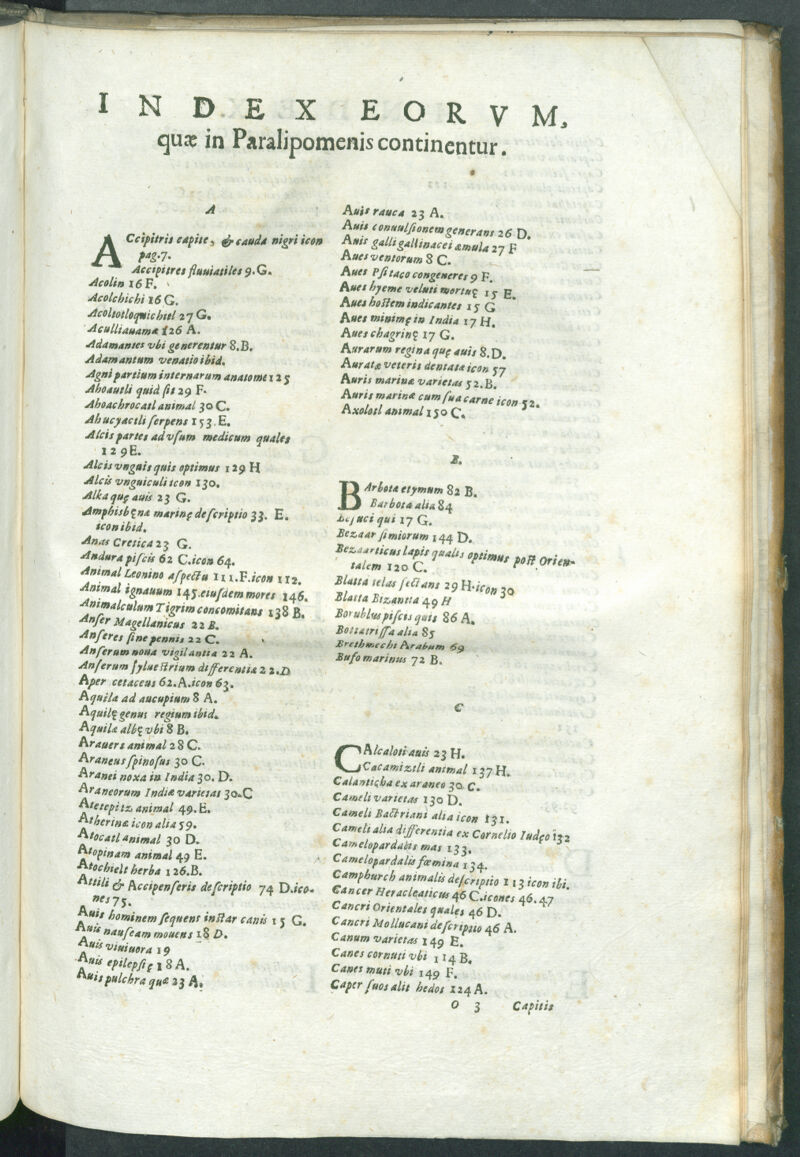 INDEX EORVM,
quæ in Paralipomenis continentur.
A
ACcipitris capite, & cauda nigri icon
pag.7.
Accipitres fluuiatiles 9.G.
Acolin 16 F.
Acolchichi 16 G.
Acoltotloquichiel 27 G.
Aculliauama 126 A.
Adamantes vbi generentur 8.B.
Adamantum venatio ibid.
Agni partium internarum anatome 125
Ahoautli quid sit 29 F.
Ahoachrocatl animal 30 C.
Ahucyactli serpens 153.E.
Alcis partes ad vsum medicum quales
129E.
Alcis vnguis quis optimus 129 H
Alcis vnguiculi icon 130.
Alka quę auis 23 G.
Amphisbęna marinę descriptio 33. E.
icon ibid.
Anas Cretica 23 G.
Andura piscis 62 C.icon 64.
Animal Leonino aspectu 111.F.icon 112.
Animal ignauum 145.eiusdem mores 146.
Animalculum Tigrim concomitans 138 B.
Anser Magellanicus 22 B.
Anseres sine pennis 22 C.
Anserum noua vigilantia 22 A.
Anserum syluestrium differentia 22.D
Aper cetaceus 62.A.icon 63.
Aquila ad aucupium 8 A.
Aquilę genus regium ibid.
Aquila albę vbi 8 B.
Arauers animal 28 C.
Araneus spinosus 30 C.
Aranei noxa in India 30. D.
Araneorum Indiæ varietas 30.C
Atetepitz animal 49.E.
Atherinæ icon alia 59.
Atocatl animal 30 D.
Atopinam animal 49 E.
Atochielt herba 126.B.
Attili & Accipenseris descriptio 74 D.ico-
nes 75.
Auis hominem sequens instar canis 15 G.
Auis nauseam mouens 18 D.
Auis viuiuora 19
Auis epilepsię 18 A.
Auis pulchra quæ 23 A.
Auis rauca 23 A.
Auis conuulsionem generans 26 D.
Auis galli gallinacei æmula 27 F
Aues ventorum 8 C.
Aues Psitaco congeneres 9 F.
Aues hyeme veluti mortuę 15 E.
Aues hostem indicantes 15 G
Aues minimę in India 17 H.
Aues chagrinę 17 G.
Aurarum regina quę auis 8.D.
Auratæ veteris dentatæ icon 57
Auris marinæ varietas 52.B.
Auris marinæ cum sua carne icon 52.
Axolotl animal 150 C.
B.
BArbota etymum 82 B.
Barbota alia 84
Bejuci qui 17 G.
Bezaar simiorum 144 D.
Bezaarticus lapis qualis optimus post Orien-
talem 120 C.
Blatta telas sectans 29 H.icon 30
Blatta Bizantia 49 H
Borublus piscis quis 86 A.
Bottatrissa alia 85
Brethmechi Arabum 69
Bufo marinus 72 B.
C
CAlcaloti auis 23 H.
Cacamiztli animal 137 H.
Calanticha ex araneo 30 C.
Cameli varietas 130 D.
Cameli Bactriani alia icon 131.
Cameli alia differentia ex Cornelio Iudęo 132
Camelopardalis mas 133.
Camelopardalis fœmina 134.
Camphurch animalis descriptio 113 icon ibi.
Cancer Heracleaticus 46 C.icones 46.47
Cancri Orientales quales 46 D.
Cancri Moluccani descriptio 46 A.
Canum varietas 149 E.
Canes cornuti vbi 114 B.
Canes muti vbi 149 F.
Caper suos alit hedos 124 A.
O 3 Capitis